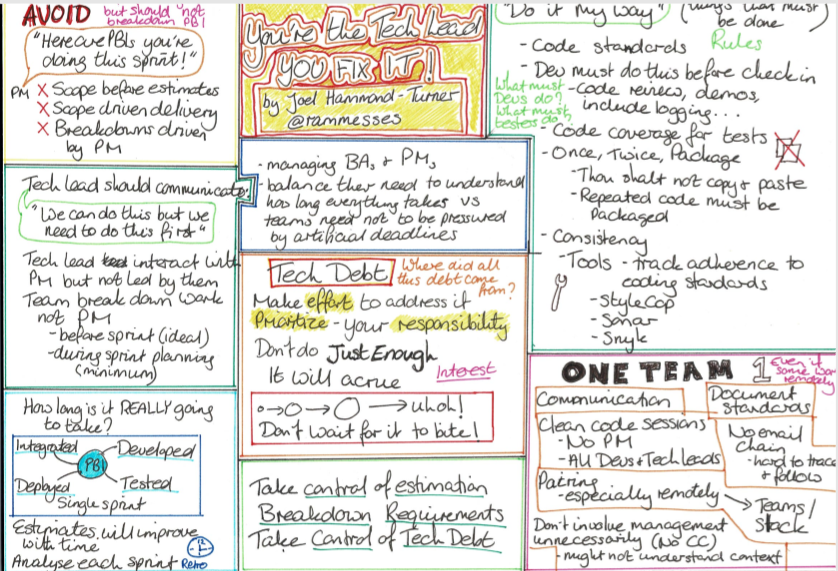 AVOID
but should not
breakdown PBI
"Here are PBIs you're
doing this sprint!"
PM X Scope before estimates
X Scope driven delivery
X Breakdowns driven
by PM
Tech Lead should communicate
"We can do this but we
need to do this first"
Tech lead interact with
PM but not led by them
Team break down work
not PM
- before sprint (ideal)
- during sprint planning
(minimum)
How long is it REALLY going
to take?
Integrated
Developed
PBI
Deployed
Tested
Single sprint
Estimates will improve
with time
Analyse each sprint Retro
You're the Tech Lead
YOU FIX IT!
by Joel Hammond-Turner
@rammesses
- managing BAs & PMs
- balance their need to understand
how long everything takes vs
teams need not to be pressured
by artificial deadlines
Tech Debt
Where did all
this debt come
from?
Make effort to address it
Prioritize - your responsibility
Don't do Just Enough
It will accrue
Interest
uhoh!
Don't wait for it to bite!
Take control of estimation
Breakdown Requirements
Take Control of Tech Debt
"Do it My Way" (things that must
be done
- Code standards
Rules
- Dev must do this before check in
What must
Devs do?
What must
testers do
- Code review, demos,
include logging...
- Code coverage for tests
- Once, Twice, Package
- Thou shalt not copy & paste
- Repeated code must be
packaged
- Consistency
- Tools - track adherence to
coding standards
- StyleCop
- Sonar
- Snyk
ONE TEAM 1
Even if
some work
remotely
Communication
Document
standards
Clean code sessions
- No PM
- All Devs + Tech Leads
No email
chain
- hard to trace
& follow
Pairing
- especially remotely
Teams/
Slack
Don't involve management
unnecessarily (No CC)
- might not understand context